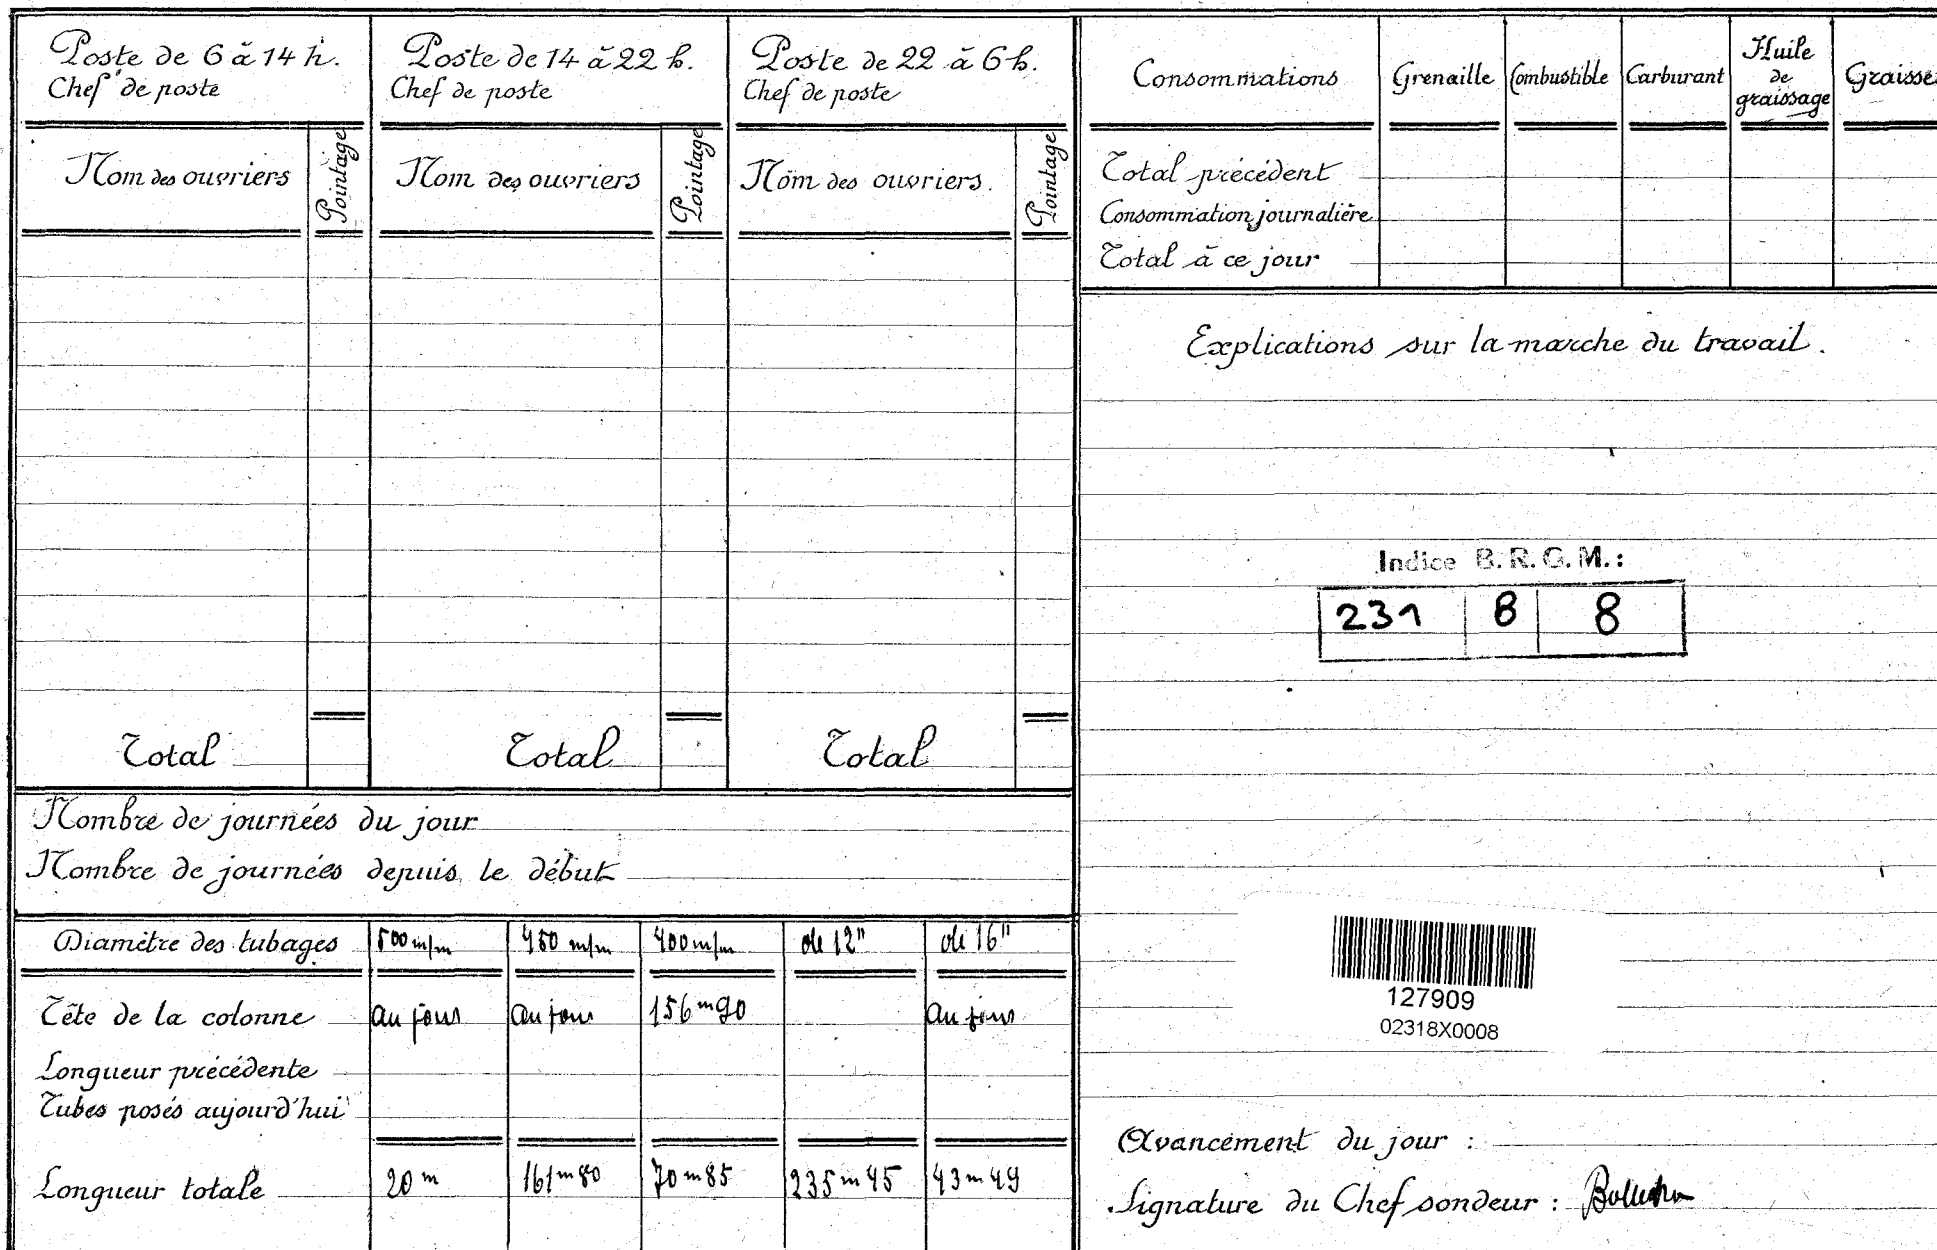 Poste de 6 à 14 h.
Chef de poste
Nom des ouvriers
Pointage
Total
Poste de 14 à 22 h.
Chef de poste
Nom des ouvriers
Pointage
Total
Poste de 22 à 6 h.
Chef de poste
Nom des ouvriers.
Pointage
Total
Nombre de journées du jour
Nombre de journées depuis le début
Diamètre des tubages 500 m/m 450 m/m 400 m/m de 12" de 16"
Tête de la colonne au jour au jour 156 m 90 au jour
Longueur précédente
Tubes posés aujourd'hui
Longueur totale 20 m 161 m 80 70 m 85 235 m 45 43 m 49
Consommations Grenaille Combustible Carburant Huile de graissage Graisse
Total précédent
Consommation journalière
Total à ce jour
Explications sur la marche du travail.
Indice B.R.G.M.:
231 8 8
127909
02318X0008
Avancement du jour :
Signature du Chef sondeur :